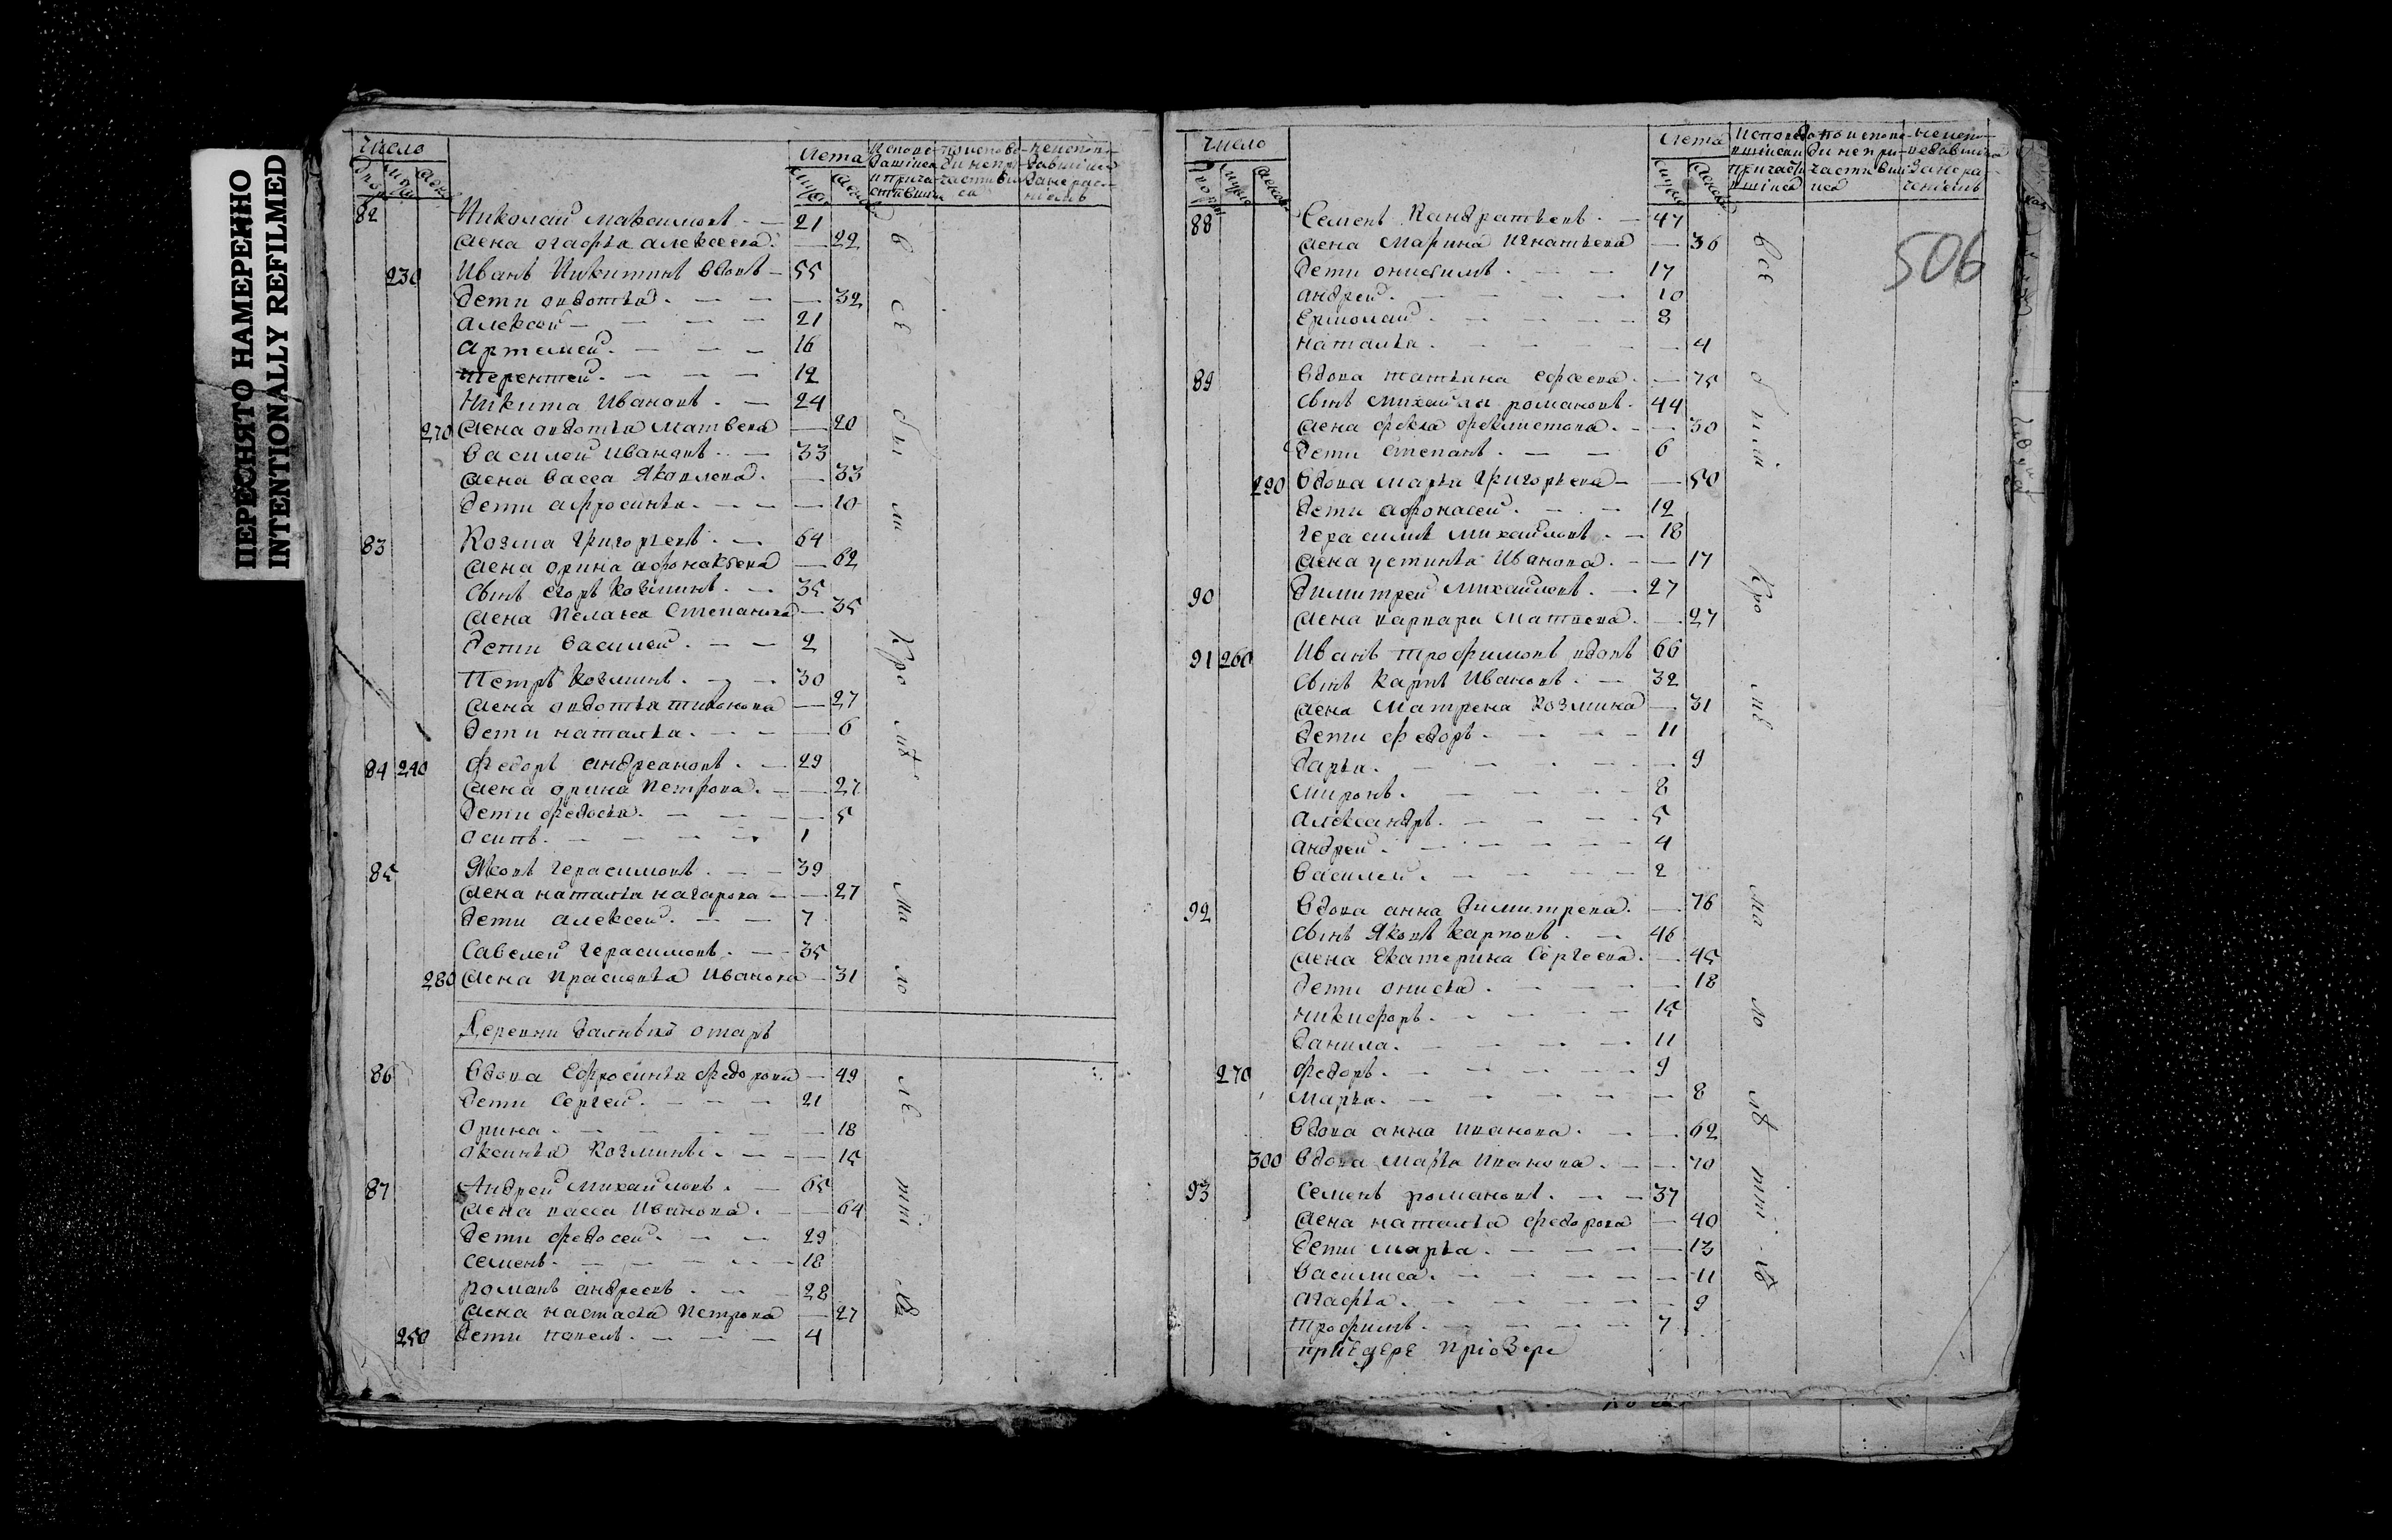 ПЕРЕСНЯТО НАМЕРЕННО
INTENTIONALLY REFILMED
Число
Лета
82 Николай Максимовъ 21
Жена Агафья Алексеева 22
230 Иванъ Никитинъ вдовъ 55
Дети Овдотья 32
Алексей 21
Артемей 16
Терентей 12
Никита Ивановъ 24
270 Жена Овдотья Матвева 20
Василей Ивановъ 33
Жена Васса Яковлева 33
Дети Афросинья 10
83 Козма Григорьевъ 64
Жена Орина 62
Сынъ Егоръ Козминъ 35
Жена Пелагея Степанова 35
Дети Василей 2
Петръ Козминъ 30
Жена Овдотья Тихонова 27
Дети Наталья 6
84 240 Федоръ Андреановъ 29
Жена Орина Петрова 27
Дети Федосья 5
Осипъ 1
85 Яковъ Герасимовъ 39
Жена Наталья Назарова 27
Дети Алексей 7
Савелей Герасимовъ 35
280 Жена Прасковья Иванова 31
Деревни Далньхъ Отаръ
86 Вдова Ефросинья Федорова 49
Дети Сергей 21
Орина 18
Аксинья Козмины 15
87 Андрей Михайловъ 65
Жена Васса Иванова 64
Дети Федосей 29
Семенъ 18
Романъ Андреевъ 28
Жена Настасья Петрова 27
250 Дети Павелъ 4
все были кро мѣ мало лѣтнихъ
Число
Лета
506
88 Семенъ Кандратьевъ 47
Жена Марина Игнатьева 36
Дети Онисимъ 17
Андрей 10
Ермолай 8
Наталья 4
89 Вдова Татьяна 75
Сынъ Михайла Романовъ 44
Жена Фекла Феклистова 30
Дети Степанъ 6
290 Вдова Марья Григорьева 50
Дети Афонасей 12
Герасимъ Михайловъ 18
Жена Устинья Иванова 17
90 Димитрей Михайловъ 27
Жена Варвара Матвева 27
91 260 Иванъ Трофимовъ вдовъ 66
Сынъ Карпъ Ивановъ 32
Жена Матрена Козмина 31
Дети Федоръ 11
Дарья 9
Миронъ 8
Александръ 5
Андрей 4
Василей 2
92 Вдова Анна Димитрева 76
Сынъ Яковъ Карповъ 46
Жена Екатерина Сергеева 45
Дети Онисья 18
Никифоръ 15
Данила 11
270 Федоръ 9
Марья 8
Вдова Анна Иванова 62
300 Вдова Марья Иванова 70
93 Семенъ Романовъ 37
Жена Наталья Федорова 40
Дети Марья 13
Василиса 11
Агафья 9
Трофимъ 7
все были кро ме мало лѣтнихъ